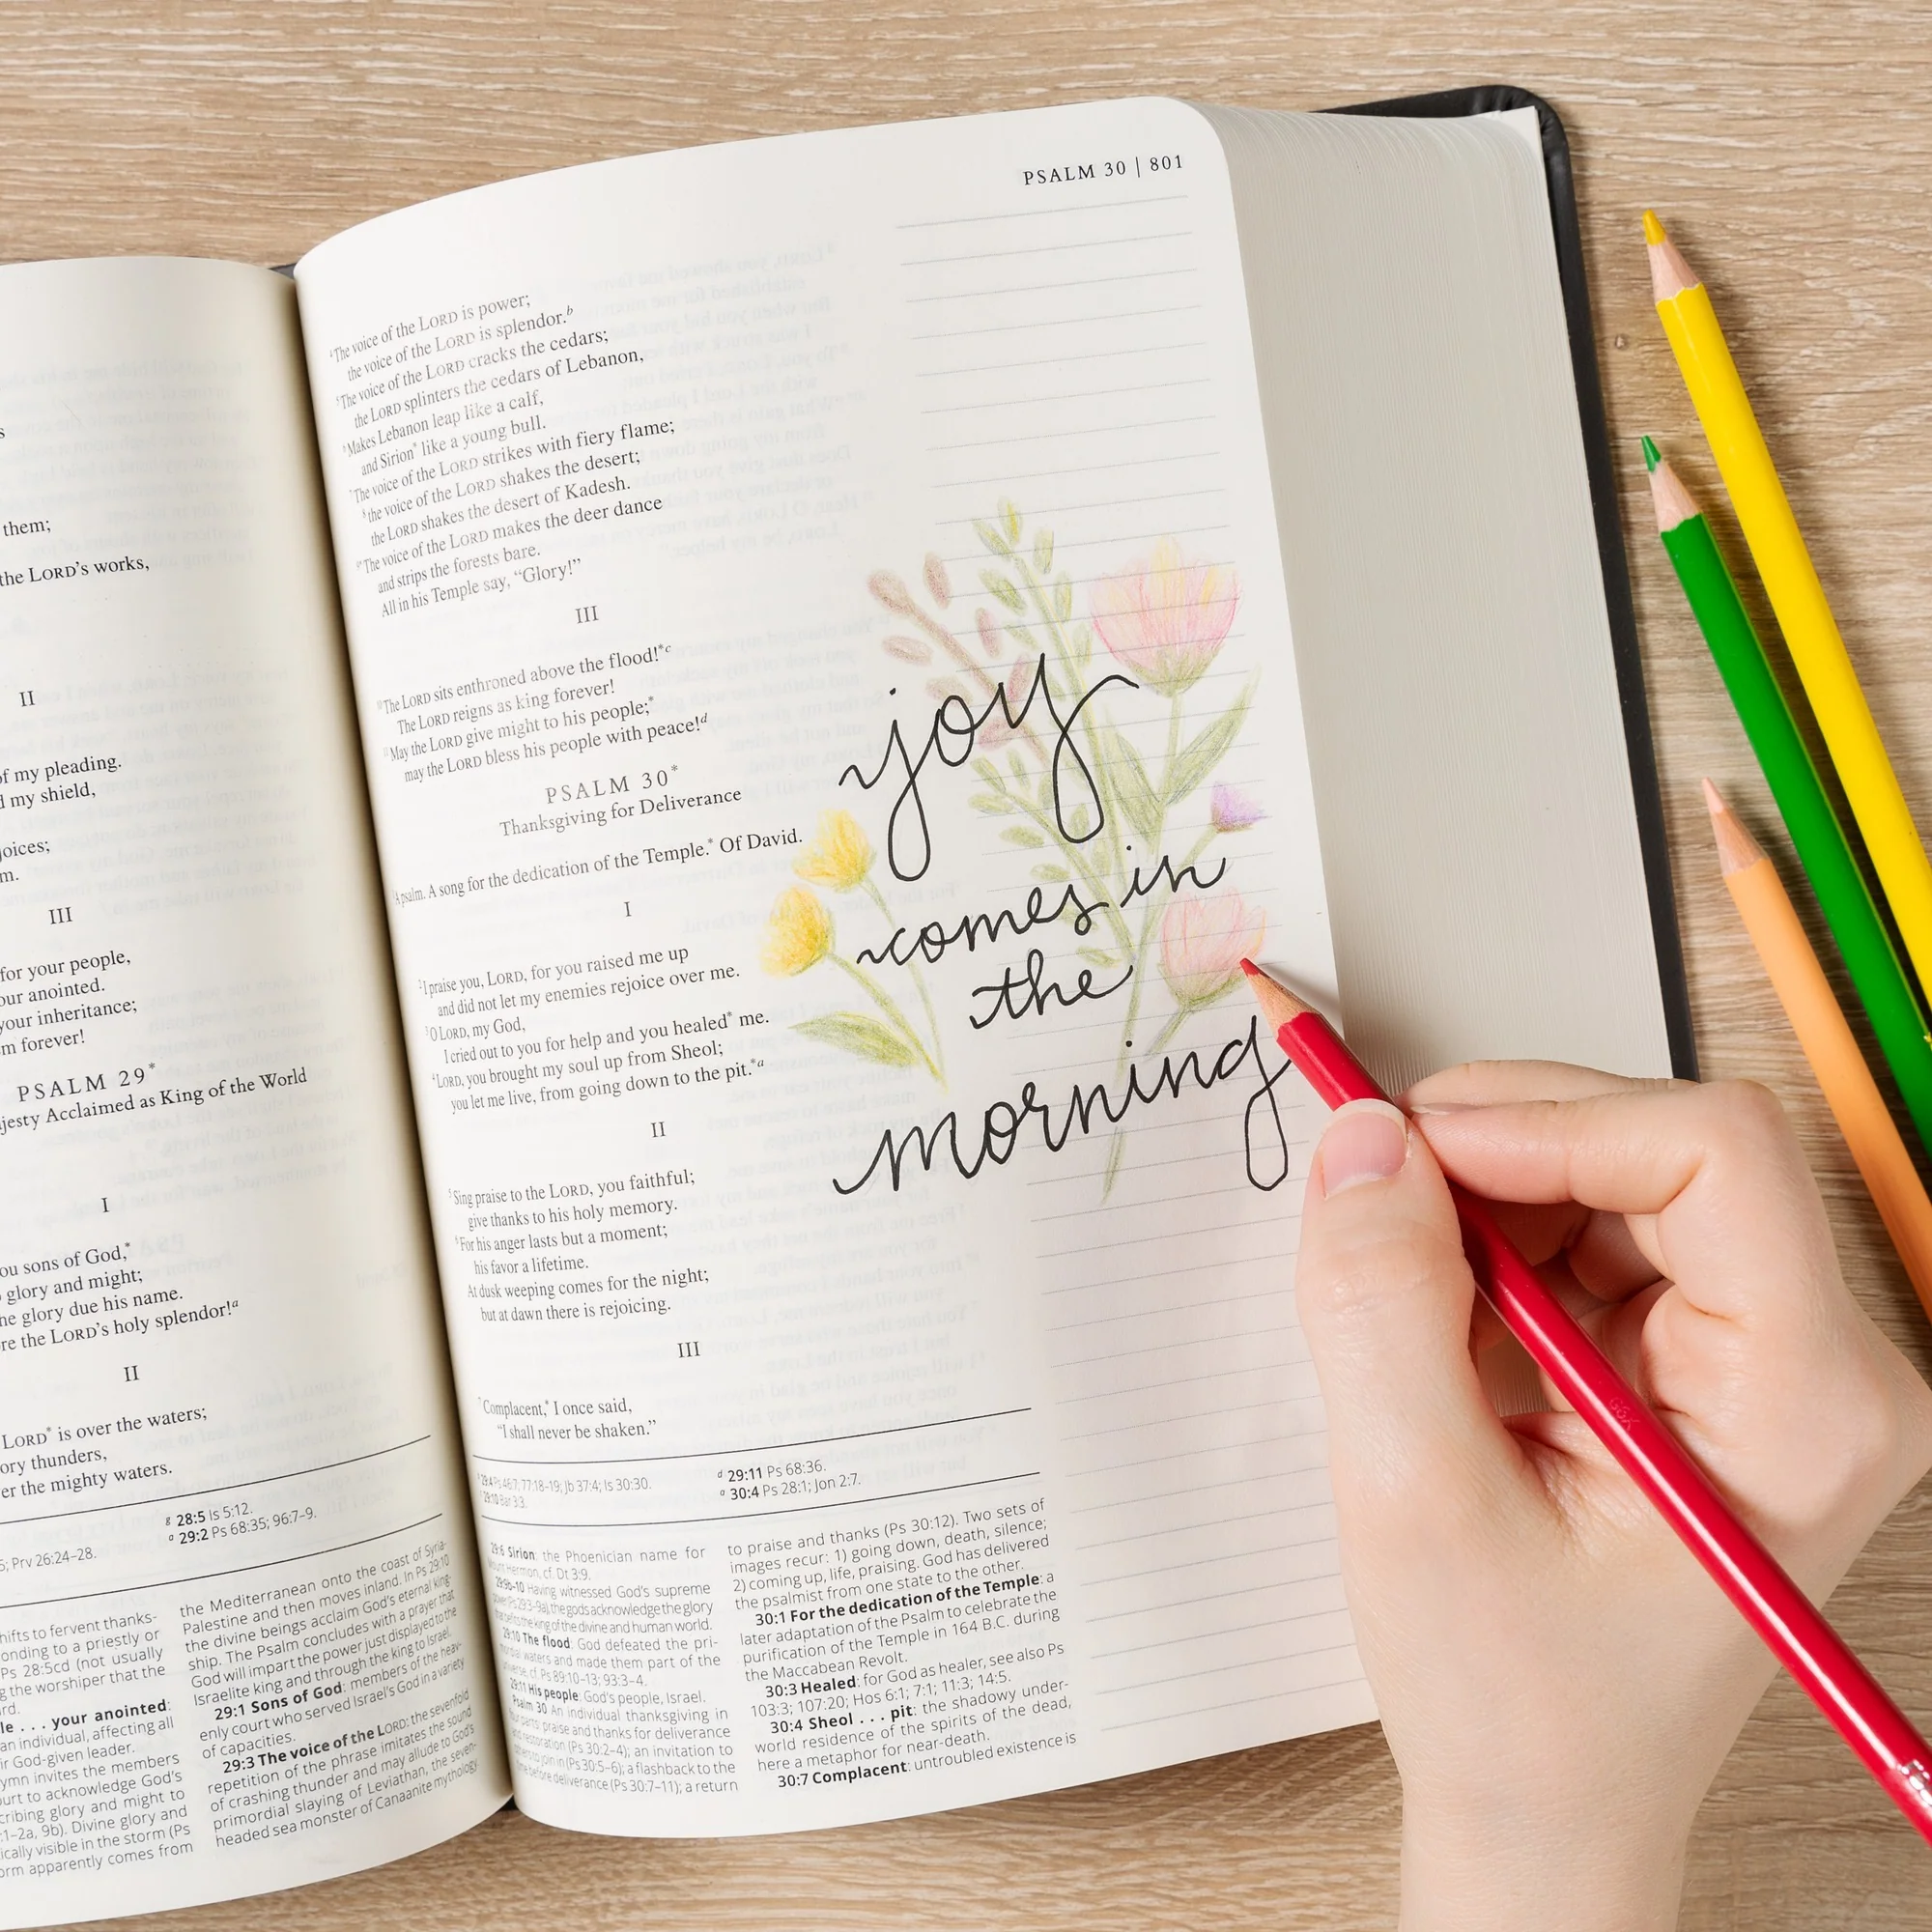 them;
the LORD's works,
II
of my pleading.
my shield,
III
for your people,
your inheritance;
forever!
PSALM 29*
Acclaimed as King of the World
I
sons of God,*
glory and might;
glory due his name.
the LORD's holy splendor!a
II
LORD* is over the waters;
thunders,
the mighty waters.
g 28:5 Is 5:12.
a 29:2 Ps 68:35; 96:7–9.
Prv 26:24–28.
to fervent thanks-
to a priestly or
Ps 28:5cd (not usually
the worshiper that the
. . . your anointed:
an individual, affecting all
God-given leader.
invites the members
to acknowledge God's
glory and might to
Divine glory and
visible in the storm (Ps
apparently comes from
the Mediterranean onto the coast of Syria-
Palestine and then moves inland. In Ps 29:10
the divine beings acclaim God's eternal king-
ship. The Psalm concludes with a prayer that
God will impart the power just displayed to the
Israelite king and through the king to Israel.
29:1 Sons of God: members of the heav-
enly court who served Israel's God in a variety
of capacities.
29:3 The voice of the LORD: the sevenfold
repetition of the phrase imitates the sound
of crashing thunder and may allude to God's
primordial slaying of Leviathan, the seven-
headed sea monster of Canaanite mythology.
PSALM 30 | 801
4The voice of the LORD is power;
the voice of the LORD is splendor.b
5The voice of the LORD cracks the cedars;
the LORD splinters the cedars of Lebanon,
6Makes Lebanon leap like a calf,
and Sirion* like a young bull.
7The voice of the LORD strikes with fiery flame;
8the voice of the LORD shakes the desert;
the LORD shakes the desert of Kadesh.
9The voice of the LORD makes the deer dance
and strips the forests bare.
All in his Temple say, “Glory!”
III
10The LORD sits enthroned above the flood!*c
The LORD reigns as king forever!
11May the LORD give might to his people;*
may the LORD bless his people with peace!d
PSALM 30*
Thanksgiving for Deliverance
1A psalm. A song for the dedication of the Temple.* Of David.
I
2I praise you, LORD, for you raised me up
and did not let my enemies rejoice over me.
3O LORD, my God,
I cried out to you for help and you healed* me.
4LORD, you brought my soul up from Sheol;
you let me live, from going down to the pit.*a
II
5Sing praise to the LORD, you faithful;
give thanks to his holy memory.
6For his anger lasts but a moment;
his favor a lifetime.
At dusk weeping comes for the night;
but at dawn there is rejoicing.
III
7Complacent,* I once said,
“I shall never be shaken.”
joy
comes in
the
morning
29:4 Ps 46:7; 77:18–19; Jb 37:4; Is 30:30.
29:10 Bar 3:3.
d 29:11 Ps 68:36.
a 30:4 Ps 28:1; Jon 2:7.
29:6 Sirion: the Phoenician name for
Mount Hermon, cf. Dt 3:9.
29:9b–10 Having witnessed God's supreme
power (Ps 29:3–9a), the gods acknowledge the glory
that befits the king of the divine and human world.
29:10 The flood: God defeated the pri-
mordial waters and made them part of the
universe, cf. Ps 89:10–13; 93:3–4.
29:11 His people: God's people, Israel.
Psalm 30 An individual thanksgiving in
four parts: praise and thanks for deliverance
and restoration (Ps 30:2–4); an invitation to
others to join in (Ps 30:5–6); a flashback to the
time before deliverance (Ps 30:7–11); a return
to praise and thanks (Ps 30:12). Two sets of
images recur: 1) going down, death, silence;
2) coming up, life, praising. God has delivered
the psalmist from one state to the other.
30:1 For the dedication of the Temple: a
later adaptation of the Psalm to celebrate the
purification of the Temple in 164 B.C. during
the Maccabean Revolt.
30:3 Healed: for God as healer, see also Ps
103:3; 107:20; Hos 6:1; 7:1; 11:3; 14:5.
30:4 Sheol . . . pit: the shadowy under-
world residence of the spirits of the dead,
here a metaphor for near-death.
30:7 Complacent: untroubled existence is